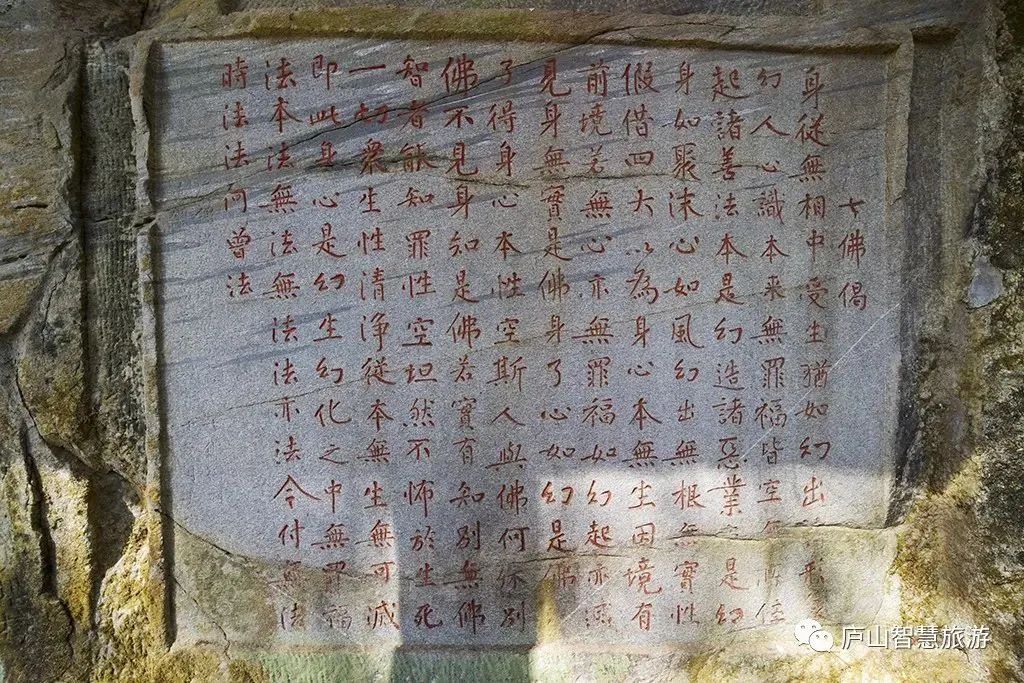 七佛偈
身從無相中受生猶如幻出形
幻人心識本来無罪福皆空無住
起諸善法本是幻造諸惡業是幻
身如聚沫心如風幻出無根無實性
假借四大以為身心本無生因境有
前境若無心亦無罪福如幻起亦滅
見身無實是佛身了心如幻是佛
了得身心本性空斯人與佛何殊別
佛不見身知是佛若實有知別無佛
智者能知罪性空坦然不怖於生死
一切衆生性清淨從本無生無可滅
即此身心是幻生幻化之中無罪福
法本法無法無法法亦法今付無法
時法法何曾法
庐山智慧旅游